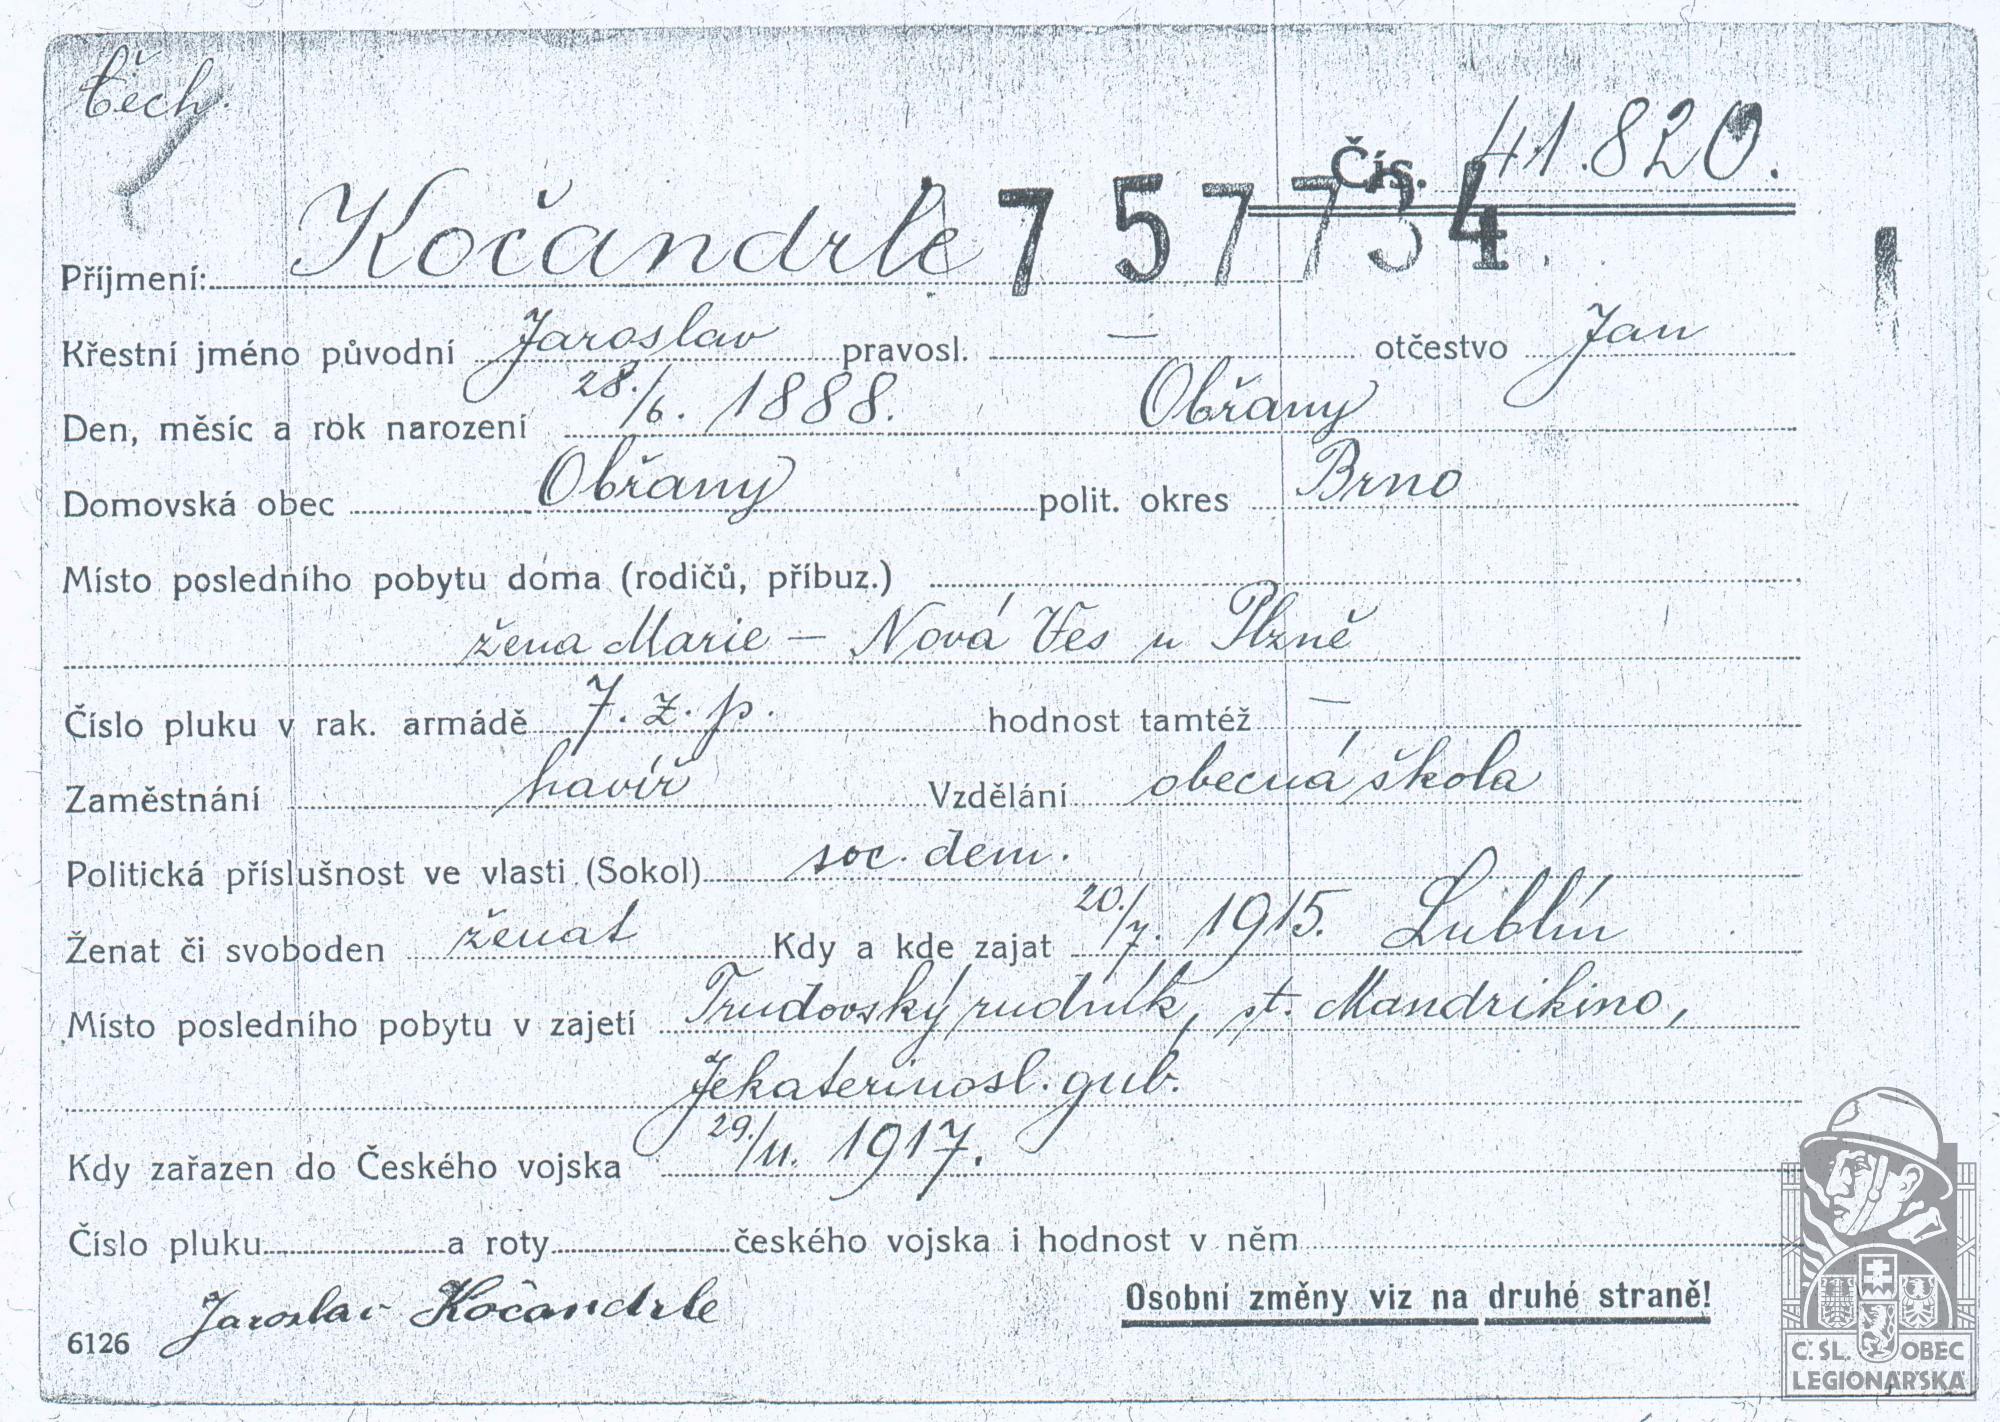 těch.
Čís. 41.820.
757734
Příjmení: Kočandrle
Křestní jméno původní Jaroslav pravosl. — otčestvo Jan
Den, měsíc a rok narození 28./6. 1888. Obřany
Domovská obec Obřany polit. okres Brno
Místo posledního pobytu doma (rodičů, příbuz.)
žena Marie — Nová Ves u Plzně
Číslo pluku v rak. armádě 7. z. p. hodnost tamtéž —
Zaměstnání havíř Vzdělání obecná škola
Politická příslušnost ve vlasti (Sokol) soc. dem.
Ženat či svoboden ženat Kdy a kde zajat 20./7. 1915. Lublín
Místo posledního pobytu v zajetí Trudovský rudník, st. Mandrikino,
Jekaterinosl. gub.
Kdy zařazen do Českého vojska 29./11. 1917.
Číslo pluku a roty českého vojska i hodnost v něm
Jaroslav Kočandrle
Osobní změny viz na druhé straně!
6126
Č. SL. OBEC
LEGIONÁŘSKÁ